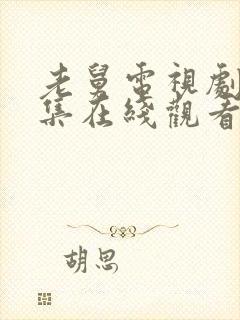 老舅電視劇
集在綫觀看
胡思